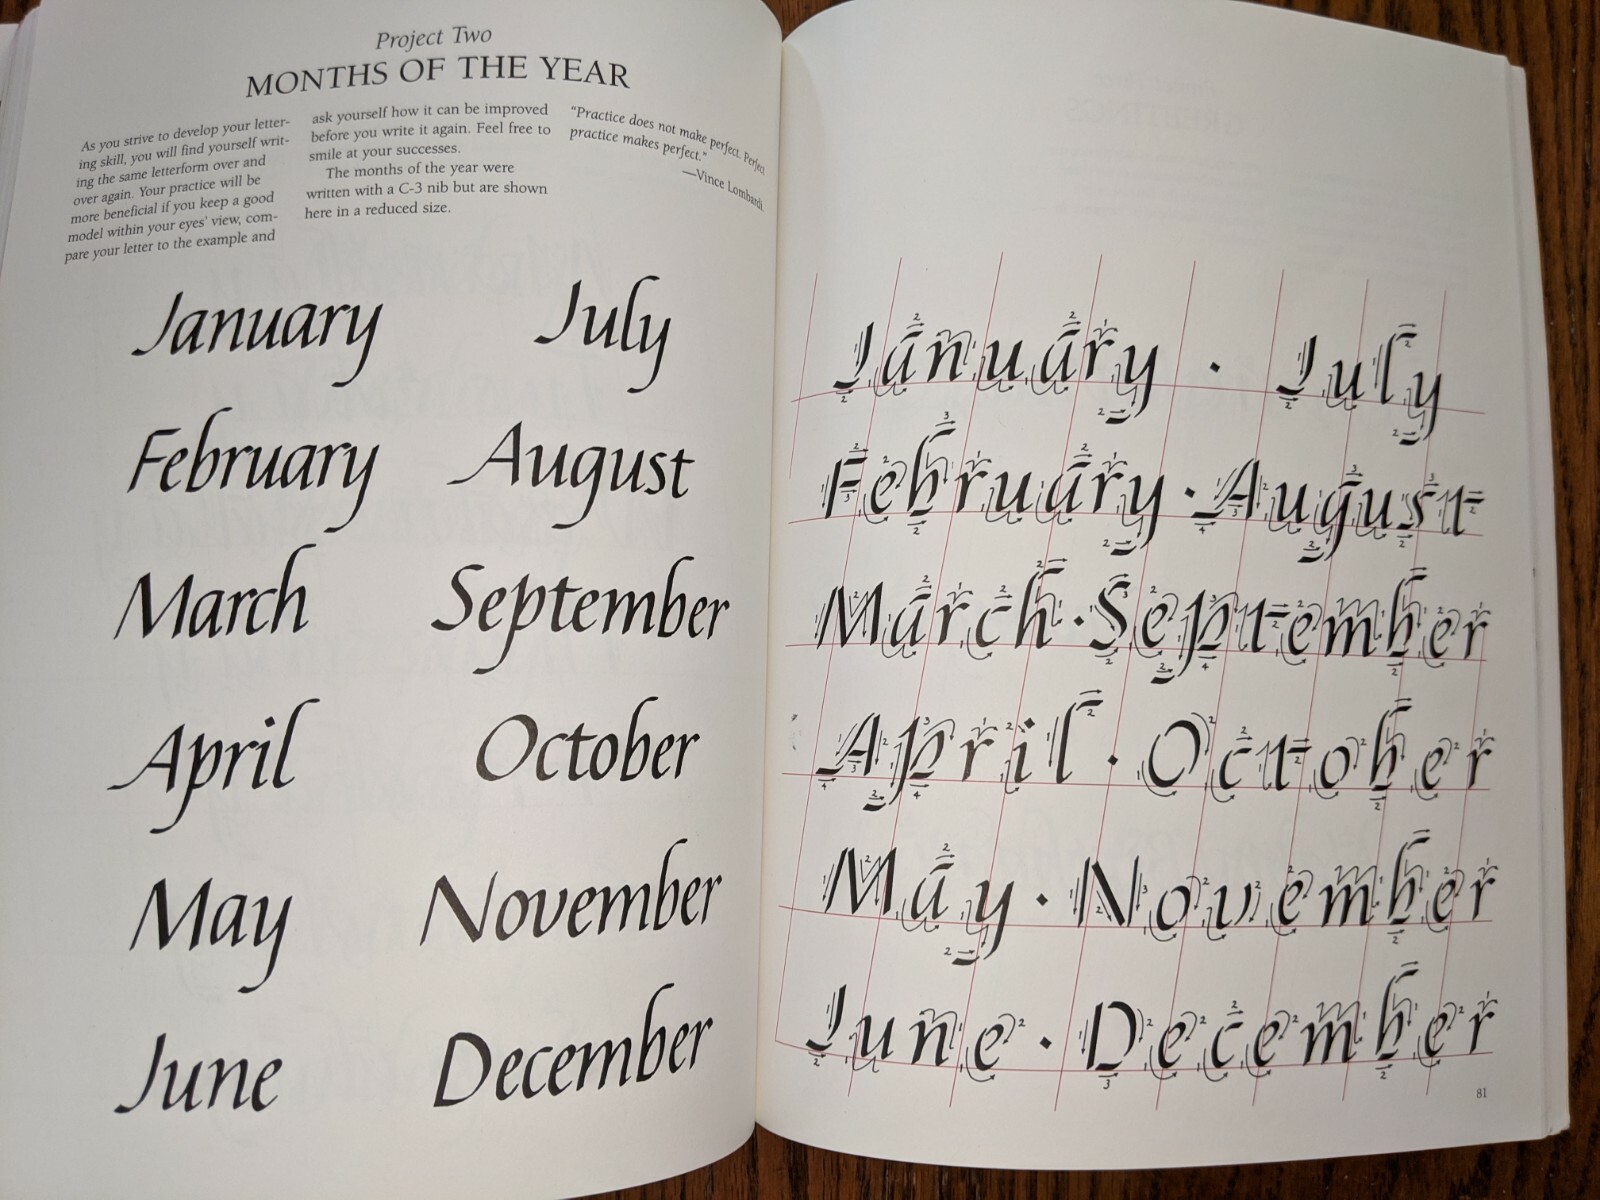 Project Two
MONTHS OF THE YEAR
As you strive to develop your letter-
ing skill, you will find yourself writ-
ing the same letterform over and
over again. Your practice will be
more beneficial if you keep a good
model within your eyes' view, com-
pare your letter to the example and
ask yourself how it can be improved
before you write it again. Feel free to
smile at your successes.
The months of the year were
written with a C-3 nib but are shown
here in a reduced size.
"Practice does not make perfect. Perfect
practice makes perfect."
—Vince Lombardi
January July
February August
March September
April October
May November
June December
January · July
February · August
March · September
April · October
May · November
June · December
81